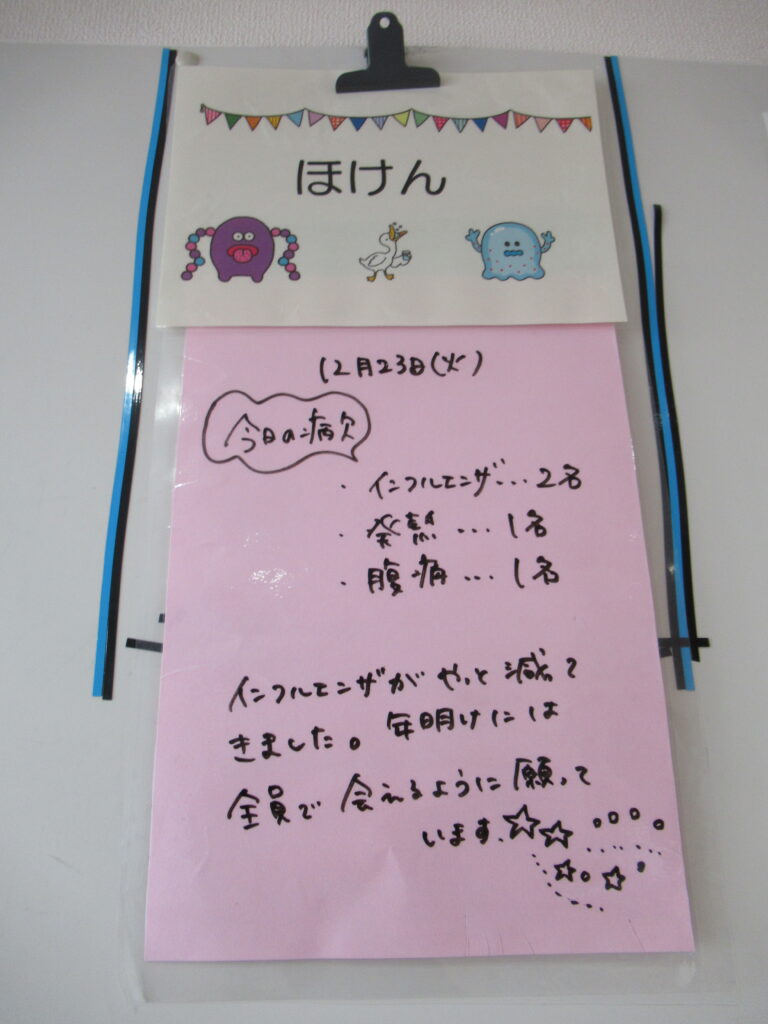 ほけん
12月23日(火)
今日の病欠
・インフルエンザ...2名
・発熱...1名
・腹痛...1名
インフルエンザがやっと減って
きました。年明けには
全員で会えるように願って
います.☆☆